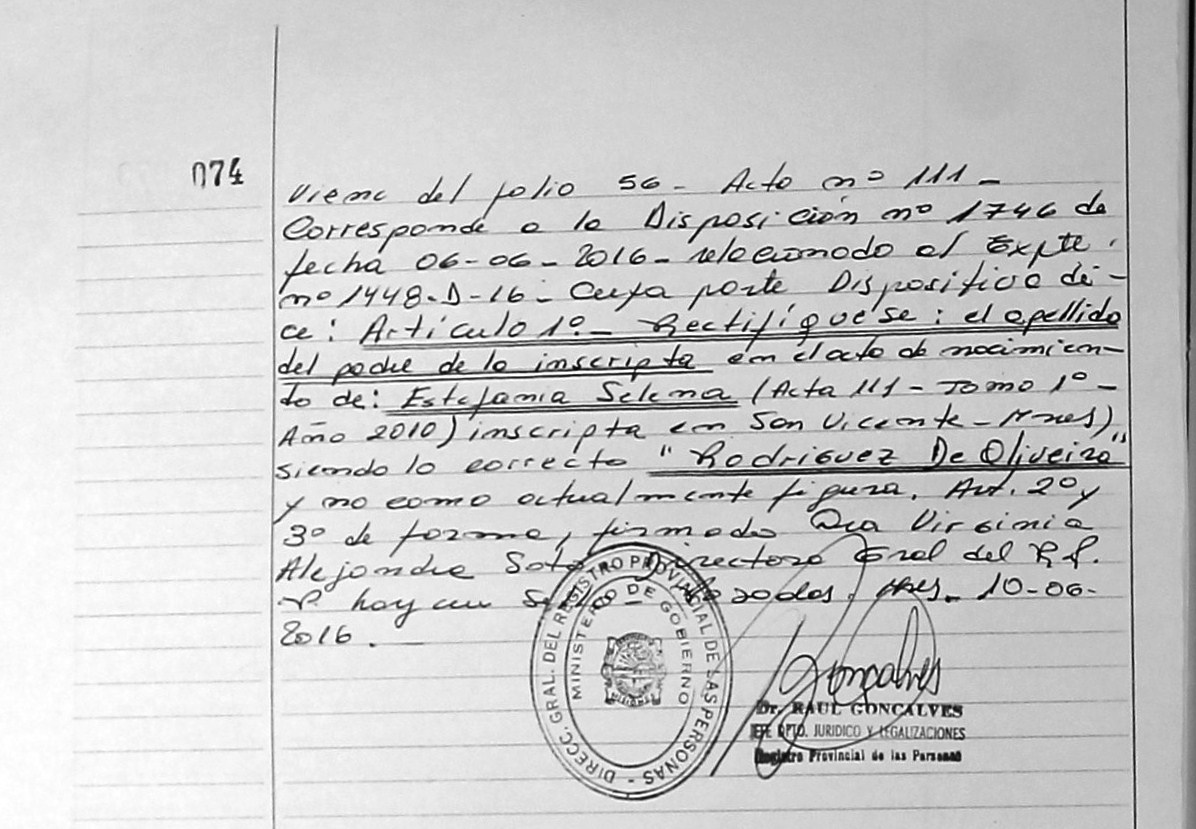 074
Viene del folio 56 - Acta nº 111 -
Corresponde a la Disposición nº 1746 de
fecha 06-06-2016- relacionado al Expte.
nº 1448-D-16- Cuya parte Dispositiva di-
ce: Artículo 1º- Rectifíquese: el apellido
del padre de la inscripta en el acta de nacimien-
to de: Estefania Selena (Acta 111 - Tomo 1º -
Año 2010) inscripta en San Vicente - Mnes)
siendo lo correcto "Rodriguez De Oliveira"
y no como actualmente figura. Art. 2º y
3º de forma, firmado Dra Virginia
Alejandra Soto Directora Gral del R.P.
P. hoy en Posadas, Mnes - 10-06-
2016.-
DIRECC. GRAL. DEL REGISTRO PROVINCIAL DE LAS PERSONAS -
MINISTERIO DE GOBIERNO
MISIONES
Gonçalves
Dr. RAUL GONCALVES
JEFE DPTO. JURIDICO Y LEGALIZACIONES
Registro Provincial de las Personas